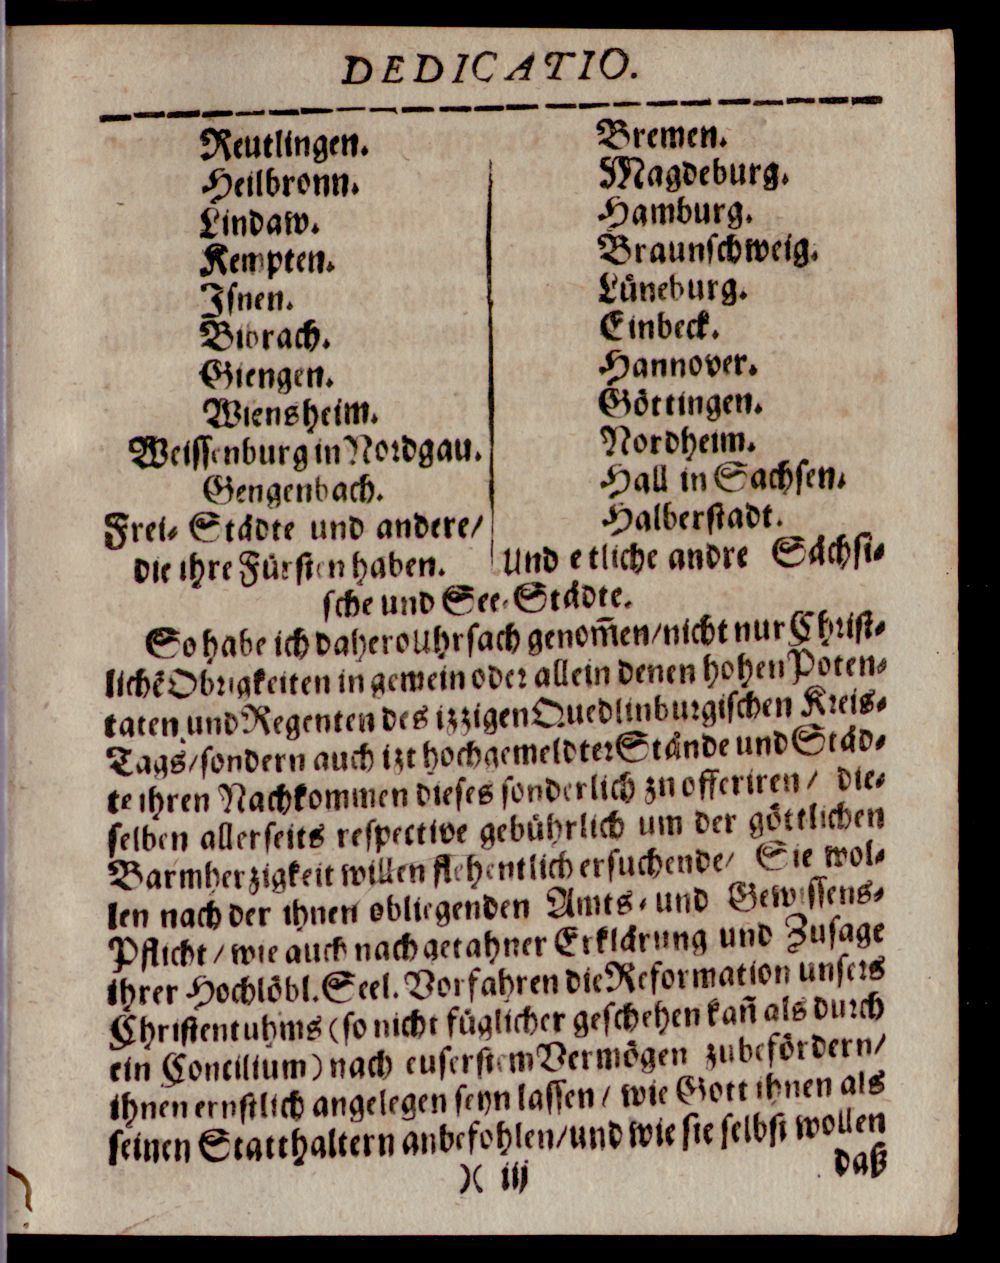 DEDICATIO.
Reutlingen.
Heilbronn.
Lindaw.
Kempten.
Isnen.
Bibrach.
Giengen.
Wiensheim.
Weissenburg in Nordgau.
Gengenbach.
Frei- Städte und andere/
die ihre Fürsten haben.
Bremen.
Magdeburg.
Hamburg.
Braunschweig.
Lüneburg.
Einbeck.
Hannover.
Göttingen.
Nordheim.
Hall in Sachsen.
Halberstadt.
Und etliche andre Sächsi-
sche und See-Städte.
So habe ich dahero Uhrsach genom̃en/nicht nur Christ-
lichẽ Obrigkeiten in gemein oder allein denen hohen Poten-
taten und Regenten des izzigen Quedlinburgischen Kreis-
Tags/sondern auch izt hochgemeldter Stände und Städ-
te ihren Nachkommen dieses sonderlich zu offeriren/ die-
selben allerseits respective gebührlich um der göttlichen
Barmherzigkeit willen flehentlich ersuchende/ Sie wol-
len nach der ihnen obliegenden Amts- und Gewissens-
Pflicht/wie auch nach getahner Erklärung und Zusage
ihrer Hochlöbl. Seel. Vorfahren die Reformation unsers
Christentuhms (so nicht füglicher geschehen kañ als durch
ein Concilium) nach euserstem Vermögen zubefördern/
ihnen ernstlich angelegen seyn lassen/ wie Gott ihnen als
seinen Statthaltern anbefohlen/und wie sie selbst wollen
)( iij
daß